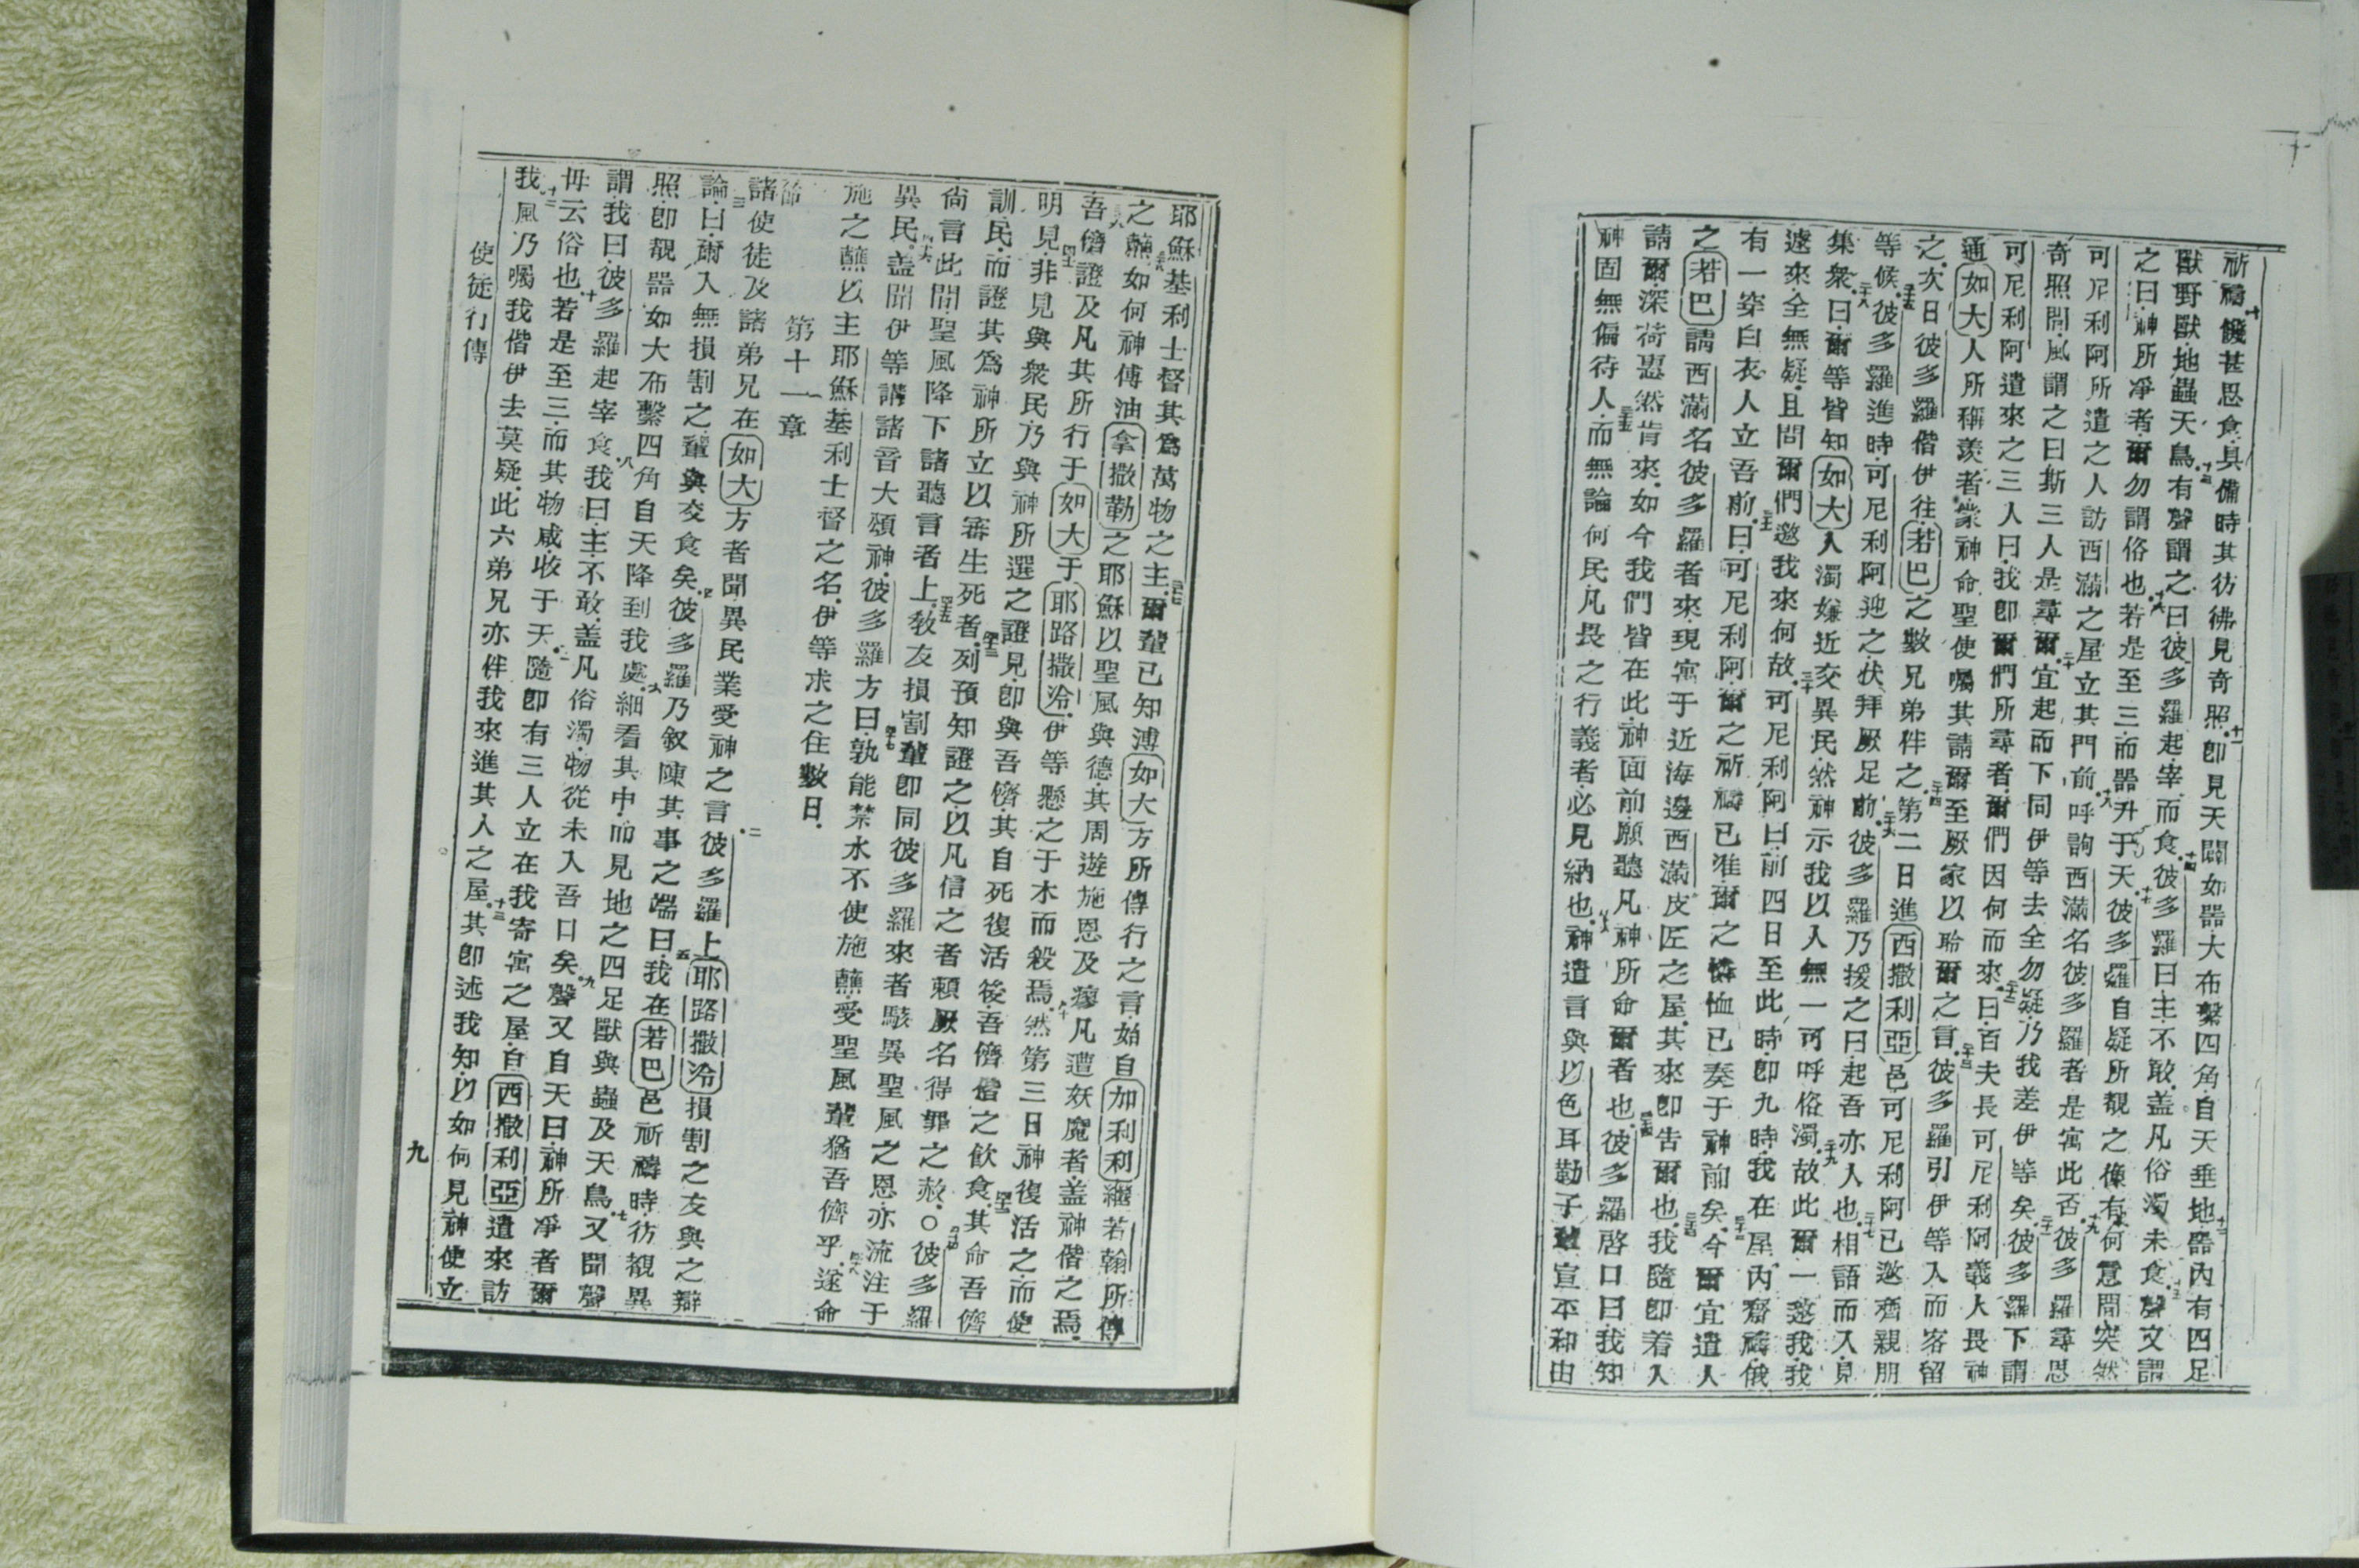 祈禱饑甚思食具備時其彷彿見奇照即見天闢如器大布繫四角自天垂地器內有四足
獸野獸地蟲天鳥有聲謂之曰彼多羅起宰而食彼多羅曰主不敢蓋凡俗濁未食聲又謂
之曰神所凈者爾勿謂俗也若是至三而器升于天彼多羅自疑所覩之像有何意間突然
可尼利阿所遣之人訪西滿之屋立其門前呼詢西滿名彼多羅者是寓此否彼多羅尋思
奇照間風謂之曰斯三人是尋爾宜起而下同伊等去全勿疑乃我差伊等矣彼多羅下謂
可尼利阿遣來之三人曰我即爾們所尋者爾們因何而來曰百夫長可尼利阿義人畏神
通如大人所稱羨者蒙神命聖使囑其請爾至厥家以聆爾之言彼多羅引伊等入而客留
之次日彼多羅偕伊往若巴之數兄弟伴之第二日進西撒利亞邑可尼利阿已邀齊親朋
等候彼多羅進時可尼利阿迎之伏拜厥足前彼多羅乃援之曰起吾亦人也相語而入見
集衆曰爾等皆知如大人濁嫌近交異民然神示我以人無一可呼俗濁故此爾一邀我我
遽來全無疑且問爾們邀我來何故可尼利阿曰前四日至此時即九時我在屋內齋禱俄
有一穿白衣人立吾前曰可尼利阿爾之祈禱已准爾之憐恤已奏于神前矣今爾宜遣人
之若巴請西滿名彼多羅者來現寓于近海邊西滿皮匠之屋其來即告爾也我隨即着人
請爾深荷惠然肯來如今我們皆在此神面前願聽凡神所命爾者也彼多羅啓口曰我知
神固無偏待人而無論何民凡畏之行義者必見納也神遣言與以色耳勒子輩宣平和由
耶穌基利士督其爲萬物之主爾輩已知溥如大方所傳行之言始自加利利繼若翰所傳
之蘸如何神傅油拿撒勒之耶穌以聖風與德其周遊施恩及瘳凡遭妖魔者蓋神偕之焉
吾儕證及凡其所行于如大于耶路撒冷伊等懸之于木而殺焉然第三日神復活之而使
明見非見與衆民乃與神所選之證見即與吾儕其自死復活後吾儕偕之飲食其命吾儕
訓民而證其爲神所立以審生死者列預知證之以凡信之者賴厥名得罪之赦○彼多羅
尙言此間聖風降下諸聽言者上敎友損割輩即同彼多羅來者駭異聖風之恩亦流注于
異民蓋聞伊等講諸音大頌神彼多羅方曰孰能禁水不使施蘸受聖風輩猶吾儕乎遂命
施之蘸以主耶穌基利士督之名伊等求之住數日
節 第十一章
諸使徒及諸弟兄在如大方者聞異民業受神之言彼多羅上耶路撒冷損割之友與之辯
論曰爾入無損割之輩與交食矣彼多羅乃敘陳其事之端曰我在若巴邑祈禱時彷覩異
照即覩器如大布繫四角自天降到我處細看其中而見地之四足獸與蟲及天鳥又聞聲
謂我曰彼多羅起宰食我曰主不敢蓋凡俗濁物從未入吾口矣聲又自天曰神所凈者爾
毋云俗也若是至三而其物咸收于天隨即有三人立在我寄寓之屋自西撒利亞遣來訪
我風乃囑我偕伊去莫疑此六弟兄亦伴我來進其人之屋其即述我知以如何見神使立
使徒行傳 九